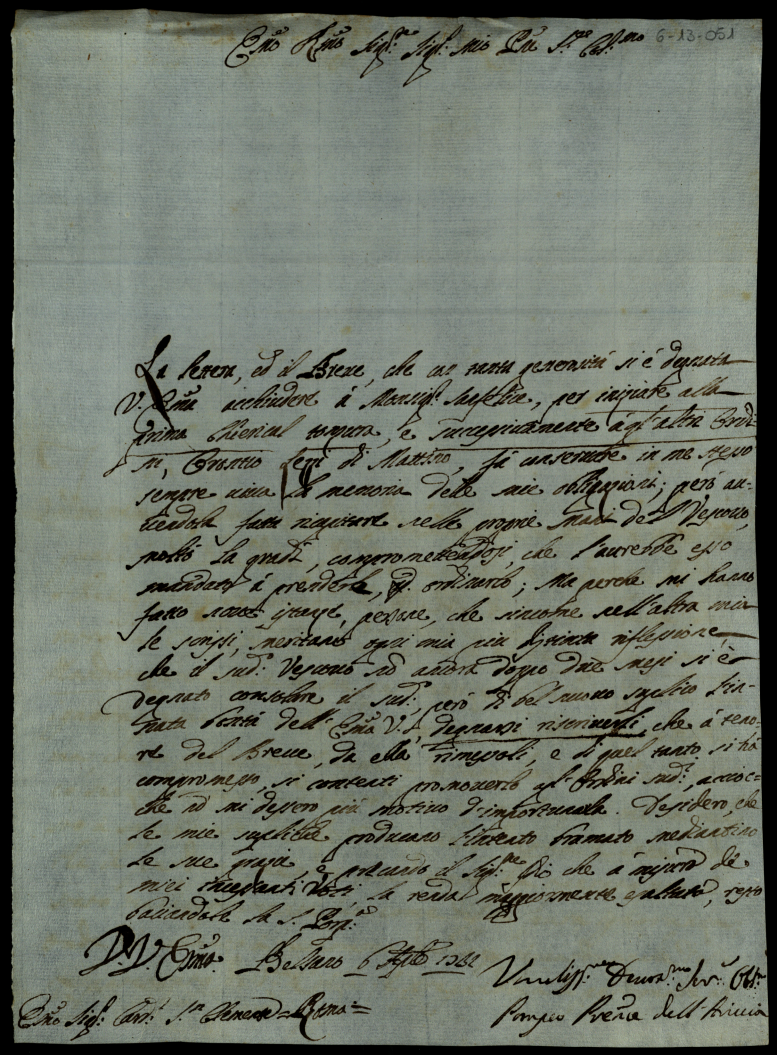 Emo Rmo Sig.re Sig.r mio Pne S.re Col.mo 6-13-051
La lettera, ed il Breve, che con tanta generosità si è degnata
V. Ema acchiudere à Monsig.r Sanfelice, per iniziare alla
prima Chierical tonsura, e successivamente à gl'altri Ordi-
ni, Oronzio Leti di Mattino, fà conservare in me stesso
sempre viva la memoria delle mie obligazioni; però av-
fatta ricapitare nelle proprie mani del Vescovo,
molto la gradì, compromettendosi, che l'avrebbe esso
mandato à prenderle, ordinarlo; Ma perche mi hanno
fatto nuove istanze, persone, che siccome nell'altra mia
le scrissi, meritano ogni mia più distinta riflessione,
che il sud.o Vescovo nò ancora doppo due mesi si è
degnato consolare il sud.o però di bel nuovo suplico l'in-
nata bontà dell' Ema V., degnarsi riscriverli, che à teno-
re del Breve, da ella rimessoli, e di quel tanto si hà
compromesso, si contenti promoverlo agl'Ordini sud.i, accioc-
che nò mi dessero più motivo d'importunarla. Desidero, che
le mie supliche producano l'intento bramato mediantino
le sue grazie, e pregando il Sig.re Dio che à misura de
miei incessanti Voti, la renda maggiormente esaltata, resto
baciandole la S. Porp.a
D. V. Ema Belsano 6
Umiliss.mo Devot.mo Ser.e Obl.mo
Emo Sig.r Card.l S.n Clemente = Roma =
Pompeo dell'Ariccia